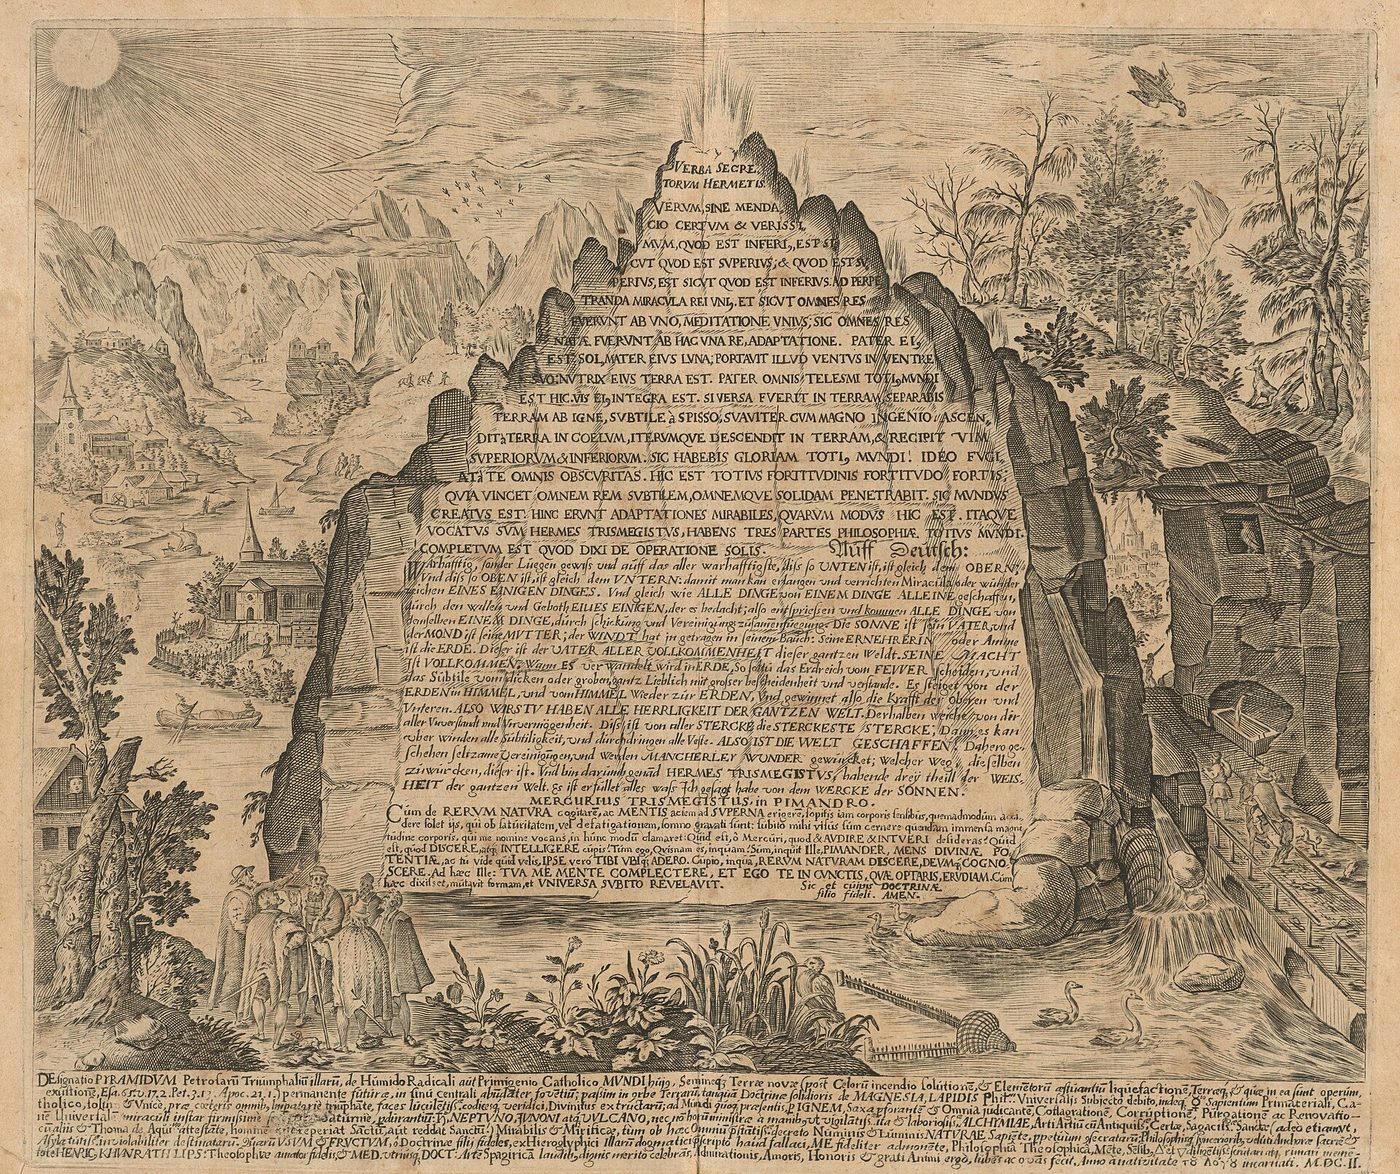 VERBA SECRE,
TORVM HERMETIS.
VERVM, SINE MENDA,
CIO CERTUM & VERISSI,
MVM, QVOD EST INFERI9, EST SI,
CUT QUOD EST SUPERIUS; & QUOD EST SU,
PERIUS, EST SICUT QUOD EST INFERIUS. AD PERPE
TRANDA MIRACULA REI UNI9. ET SICUT OMNES RES
FVERVNT AB VNO, MEDITATIONE VNIVS; SIC OMNES RES
NATÆ FVERUNT AB HAC VNA RE, ADAPTATIONE. PATER EI9
EST SOL, MATER EIVS LUNA; PORTAVIT ILLUD VENTUS IN VENTRE
SVO; NVTRIX EIVS TERRA EST. PATER OMNIS TELESMI TOTI9 MUNDI
EST HIC. VIS EI9 INTEGRA EST. SI VERSA FVERIT IN TERRAM, SEPARABIS
TERRAM AB IGNE, SVBTILE à SPISSO, SVAVITER CVM MAGNO INGENIO: ASCEN,
DIT à TERRA IN COELUM, ITERVMQVE DESCENDIT IN TERRAM, & RECIPIT VIM
SVPERIORVM & INFERIORVM. SIC HABEBIS GLORIAM TOTI9 MVNDI. IDEO FVGI,
AT à TE OMNIS OBSCVRITAS. HIC EST TOTIVS FORTITVDINIS FORTITVDO FORTIS;
QVIA VINCET OMNEM REM SVBTILEM, OMNEMQVE SOLIDAM PENETRABIT. SIC MVNDVS
CREATVS EST. HINC ERUNT ADAPTATIONES MIRABILES, QVARVM MODVS HIC EST. ITAQVE
VOCATVS SVM HERMES TRISMEGISTVS, HABENS TRES PARTES PHILOSOPHIÆ TOTIVS MVNDI.
COMPLETVM EST QVOD DIXI DE OPERATIONE SOLIS. Auff Deutsch:
WArhafftig, sonder Luegen gewiss und auff das aller warhafftigste, diss so UNTEN ist, ist gleich dem OBERN;
Vnd diss so OBEN ist, ist gleich dem VNTERN: damit man kan erlangen und verrichten Miracula oder wunder
zeichen EINES EINIGEN DINGES. Vnd gleich wie ALLE DINGE von EINEM DINGE ALLEINE geschaffen,
durch den willen und Geboth EINES EINIGEN, der es bedacht; also entspriessen und kommen ALLE DINGE von
demselben EINEM DINGE, durch schickung und Vereinigung zusamenfuegung. Die SONNE ist sein VATER, und
der MOND ist seine MVTTER; der WINDT hat in getragen in seinem Bauch: Seine ERNEHRERIN oder Amme
ist die ERDE. Dieser ist der VATER ALLER VOLLKOMMENHEIT dieser gantzen Weldt. SEINE MACHT
ist VOLLKOMMEN; Wann ES verwandelt wird in ERDE, So soltu das Erdreich vom FEWER scheiden, und
das Subtile vom dicken oder groben, gantz Lieblich mit grosser bescheidenheit und verstande. Es steiget von der
ERDEN in HIMMEL, und vom HIMMEL Wieder zur ERDEN, Vnd gewinnet also die Krafft der Obern und
Vnteren. ALSO WIRSTU HABEN ALLE HERRLIGKEIT DER GANTZEN WELT. Derhalben weiche von dir
aller Vnverstandt und Vnvermögenheit. Diss ist von aller STERCKE die STERCKESTE STERCKE; Dann es kan
uber winden alle Subtiligkeit, und durchdringen alle Veste. ALSO IST DIE WELT GESCHAFFEN. Dahero ge,
schehen seltzame Vereinigungen, und werden MANCHERLEY WUNDER gewürcket; welcher Weg, dieselben
zuwürcken, dieser ist. Vnd bin darumb genañ HERMES TRISMEGISTVS, habende drey theill der WEIS,
HEIT der gantzen Welt. Es ist erfüllet alles wass Ich gesagt habe von dem WERCKE der SONNEN.
MERCURIUS TRISMEGISTUS, in PIMANDRO.
Cum de RERUM NATURA cogitarem, ac MENTIS aciem ad SUPERNA erigerem, sopitis iam corporis sensibus, quemadmodum acci,
dere solet ijs, qui ob saturitatem, vel defatigationem, somno gravati sunt: subitò mihi visus sum cernere quendam immensa magni
tudine corporis, qui me nomine vocans, in hunc modum clamaret: Quid est, ô Mercuri, quod & AUDIRE & INTVERI desideras? Quid
est, quod DISCERE, atq; INTELLIGERE cupis? Tum ego, Quisnam es, inquam? Sum, inquit ille, PIMANDER, MENS DIVINÆ PO,
TENTIÆ, ac tu vide quid velis, IPSE vero TIBI UBIQ; ADERO. Cupio, inqua, RERUM NATURAM DISCERE, DEVMQ; COGNO,
SCERE. Ad hæc ille: TUA ME MENTE COMPLECTERE, ET EGO TE IN CUNCTIS, QVÆ OPTARIS, ERUDIAM. Cùm
hæc dixisset, mutavit formam, et UNIVERSA SUBITO REVELAVIT. Sic et cuivis DOCTRINÆ
filio fideli. AMEN.
DEsignatio PYRAMIDUM Petrosarũ Triumphaliũ illarũ, de Hùmido Radicali aùt Primigenio Catholico MVNDI hùj9, Semineq; Terræ novæ (post Cœlorũ incendio solutionẽ, & Elemẽtorũ æstuantiũ liquefactionẽ, Terræq; & quæ in ea sunt operum,
exustionẽ, Esa. 65. 17. 2. Pet. 3. 13. Apoc. 21. 1.) permanente futuræ, in sinũ centrali abundãter fovetiũ; passim in orbe Terrarũ, tanquã Doctrinæ solidioris de MAGNESIA, LAPIDIS Philˢᵒ: Vniversalis Subjecto debito, indeq; & Sapientum Primateriali, Ca,
HENRIC. KHVNRATH LIPS: Theosophiæ amator fidelis, & MED. utriusq; DOCT: